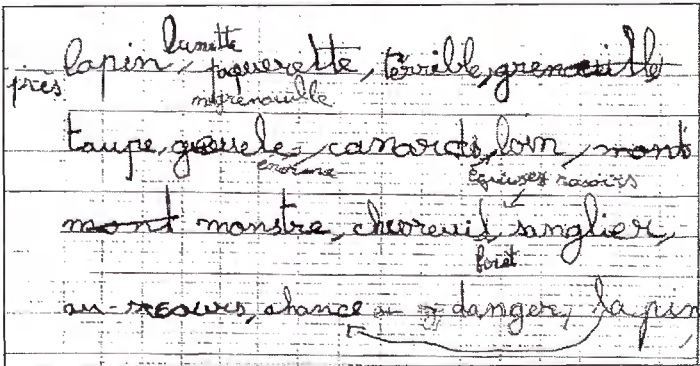 lunette
lapin, paquerette, terrible, grenouille
près
grenouille
taupe, gueule, canard, loin, mont
énorme rasoirs
mont monstre, chevreuil, sanglier,
forêt
au-secours, chance danger, lapin